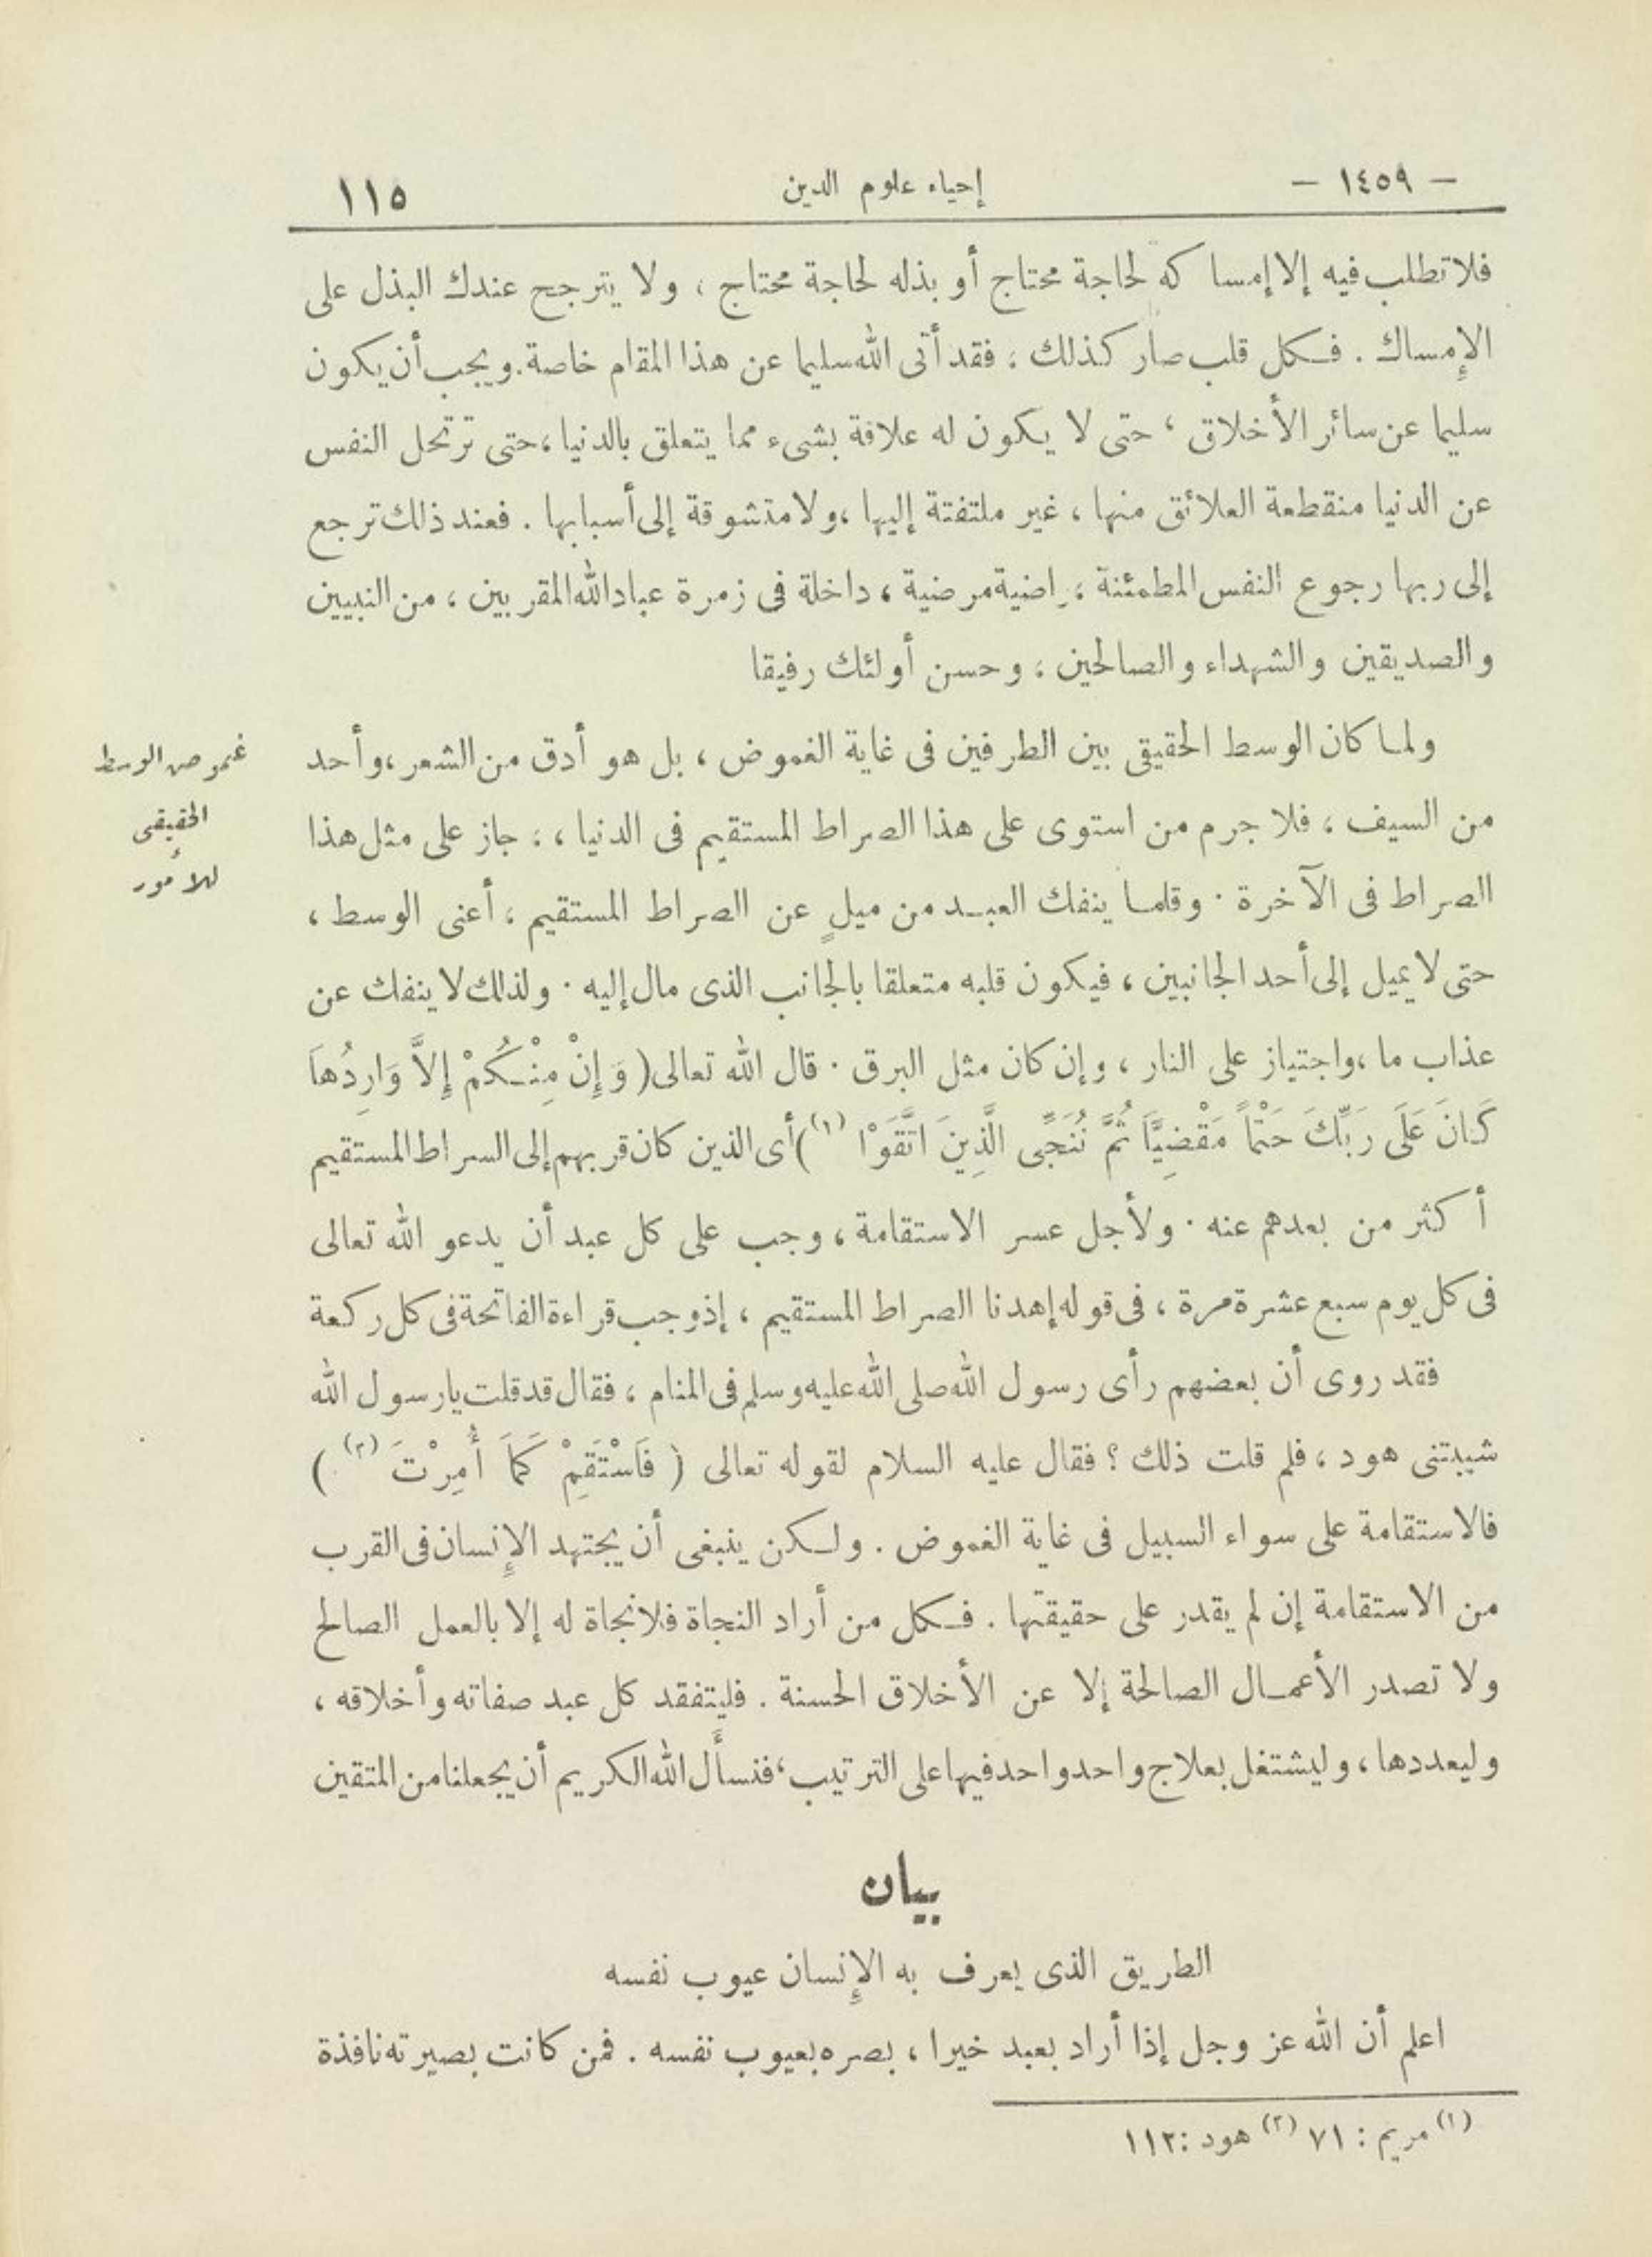 - ١٤٥٩ -
إحياء علوم الدين
١١٥
فلا تطلب فيه إلا إمساكه لحاجة محتاج أو بذله لحاجة محتاج ، ولا يترجح عندك البذل على
الإمساك . فكل قلب صار كذلك ، فقد أتى الله سليما عن هذا المقام خاصة . ويجب أن يكون
سليما عن سائر الأخلاق ، حتى لا يكون له علاقة بشىء مما يتعلق بالدنيا ، حتى ترتحل النفس
عن الدنيا منقطعة العلائق منها ، غير ملتفتة إليها ، ولا متشوقة إلى أسبابها . فعند ذلك ترجع
إلى ربها رجوع النفس المطمئنة ، راضية مرضية ، داخلة فى زمرة عباد الله المقربين ، من النبيين
والصديقين والشهداء والصالحين ، وحسن أولئك رفيقا
ولما كان الوسط الحقيقى بين الطرفين فى غاية الغموض ، بل هو أدق من الشعر ، وأحد
من السيف ، فلا جرم من استوى على هذا الصراط المستقيم فى الدنيا ، ، جاز على مثل هذا
الصراط فى الآخرة . وقلما ينفك العبد من ميلٍ عن الصراط المستقيم ، أعنى الوسط ،
حتى لا يميل إلى أحد الجانبين ، فيكون قلبه متعلقا بالجانب الذى مال إليه . ولذلك لا ينفك عن
عذاب ما ، واجتياز على النار ، وإن كان مثل البرق . قال الله تعالى ( وَإِنْ مِنْكُمْ إِلاَّ وَارِدُهاَ
كَانَ عَلَى رَبِّكَ حَتْماً مَقْضِيًّا ثُمَّ نُنَجِّى الَّذِينَ اتَّقَوْا (١) ) أى الذين كان قربهم إلى السراط المستقيم
أكثر من بعدهم عنه . ولأجل عسر الاستقامة ، وجب على كل عبد أن يدعو الله تعالى
فى كل يوم سبع عشرة مرة ، فى قوله إهدنا الصراط المستقيم ، إذ وجب قراءة الفاتحة فى كل ركعة
فقد روى أن بعضهم رأى رسول الله صلى الله عليه وسلم فى المنام ، فقال قد قلت يا رسول الله
شيبتنى هود ، فلم قلت ذلك ؟ فقال عليه السلام لقوله تعالى ( فَاسْتَقِمْ كَمَا أُمِرْتَ (٢) )
فالاستقامة على سواء السبيل فى غاية الغموض . ولكن ينبغى أن يجتهد الإنسان فى القرب
من الاستقامة إن لم يقدر على حقيقتها . فكل من أراد النجاة فلا نجاة له إلا بالعمل الصالح
ولا تصدر الأعمال الصالحة إلا عن الأخلاق الحسنة . فليتفقد كل عبد صفاته وأخلاقه ،
وليعددها ، وليشتغل بعلاج واحد واحد فيها على الترتيب ، فنسأل الله الكريم أن يجعلنا من المتقين
غموض الوسط
الحقيقى
للأمور
بيان
الطريق الذى يعرف به الإنسان عيوب نفسه
اعلم أن الله عز وجل إذا أراد بعبد خيرا ، بصره بعيوب نفسه . فمن كانت بصيرته نافذة
(١) مريم : ٧١ (٢) هود : ١١٢